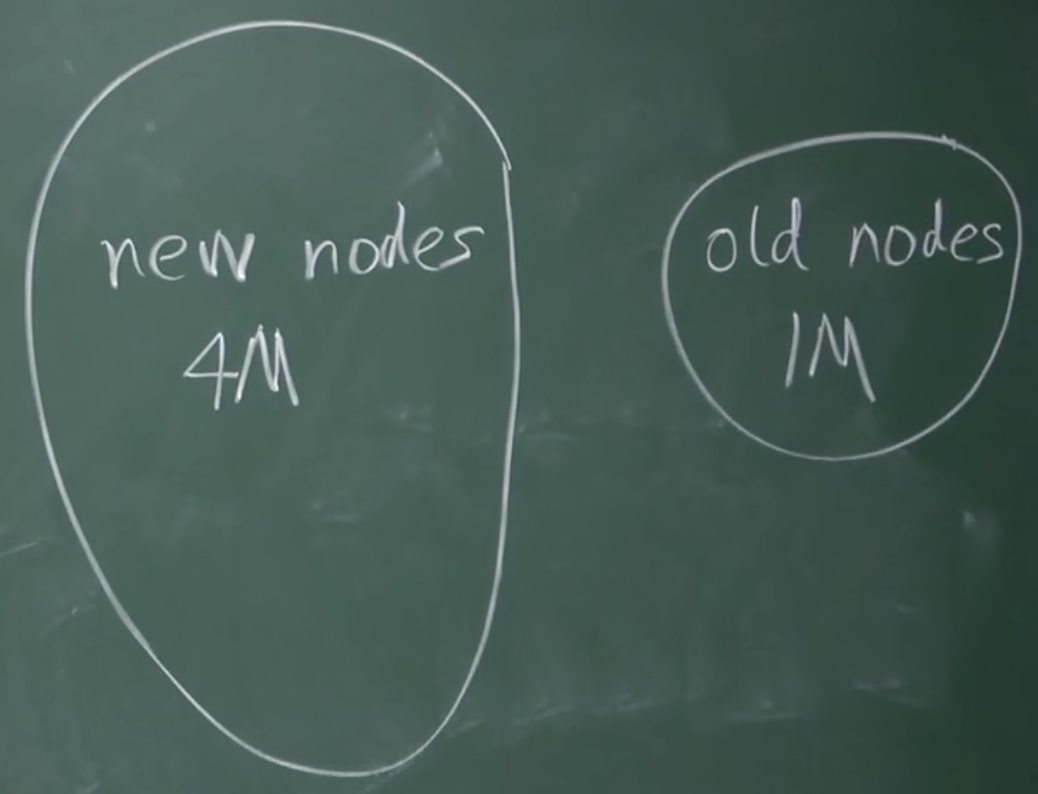 new nodes
4M
old nodes
1M